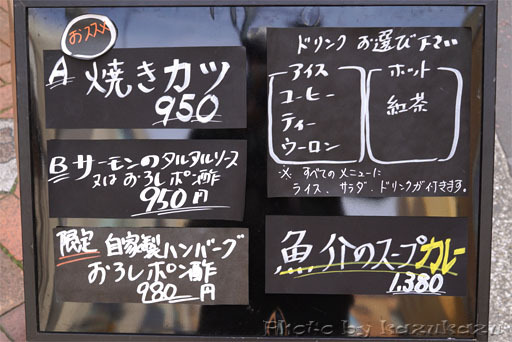 おススメ
A 焼きカツ
950
B サーモンのタルタルソース
又は おろしポン酢
950円
限定 自家製ハンバーグ
おろしポン酢
980円
ドリンク お選び下さい
アイス
コーヒー
ティー
ウーロン
ホット
紅茶
※ すべてのメニューに
ライス、サラダ、ドリンクが付きます。
魚介のスープカレー
1,380
Photo by kazukazu